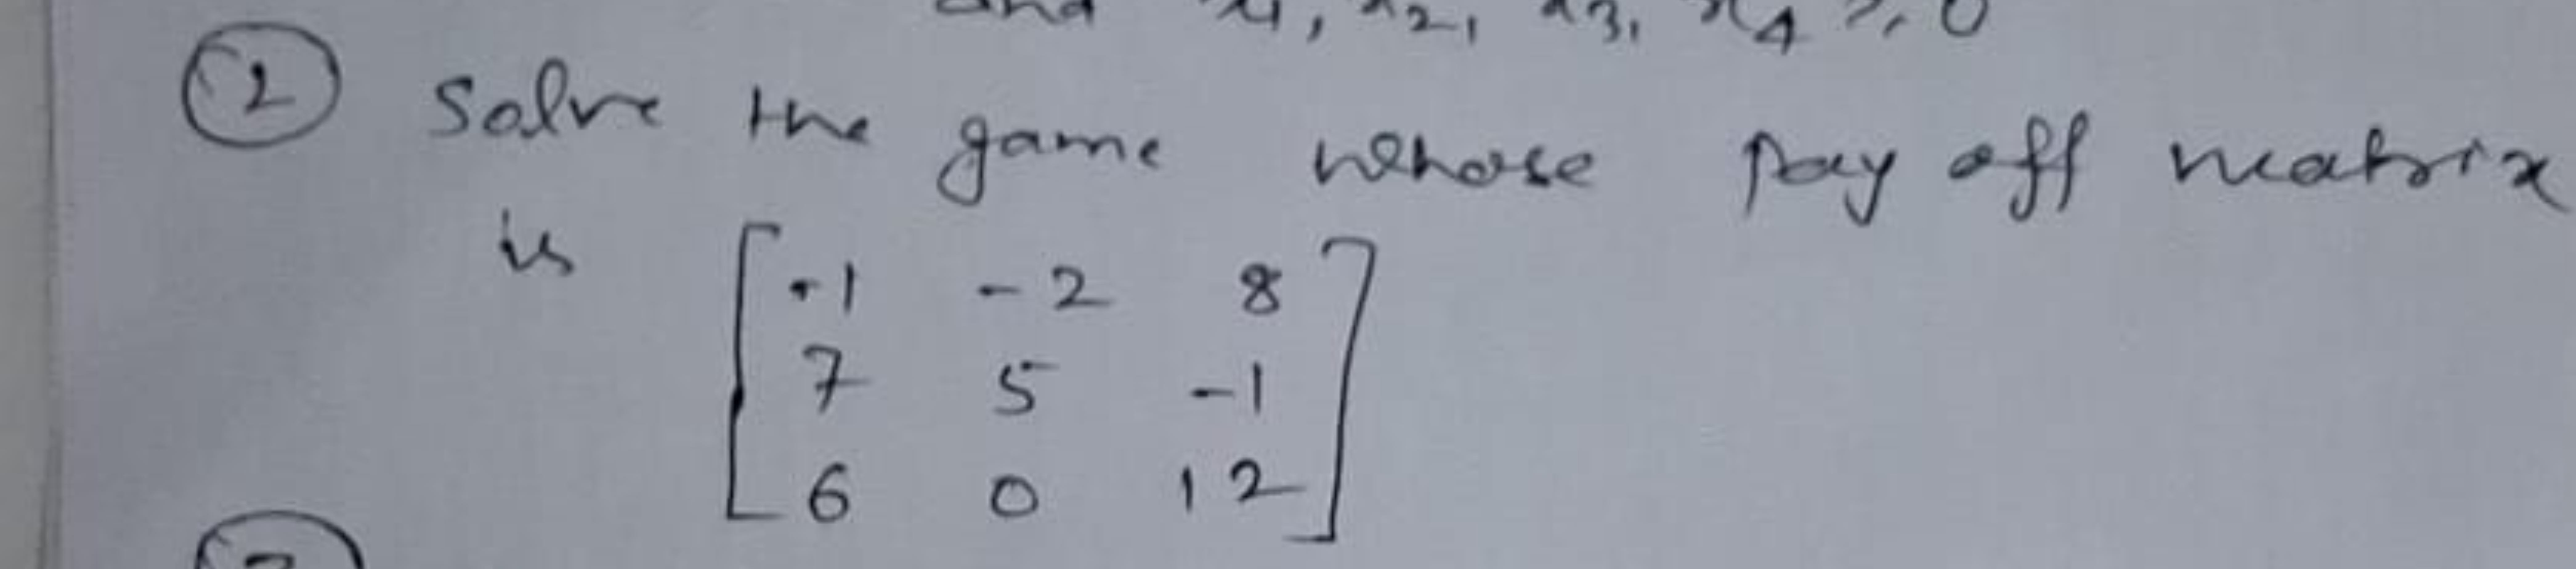 and x1, x2, x3, x4 ≥ 0
② Solve the game whose pay off matrix
is [ -1 -2 8
7 5 -1
6 0 12 ]